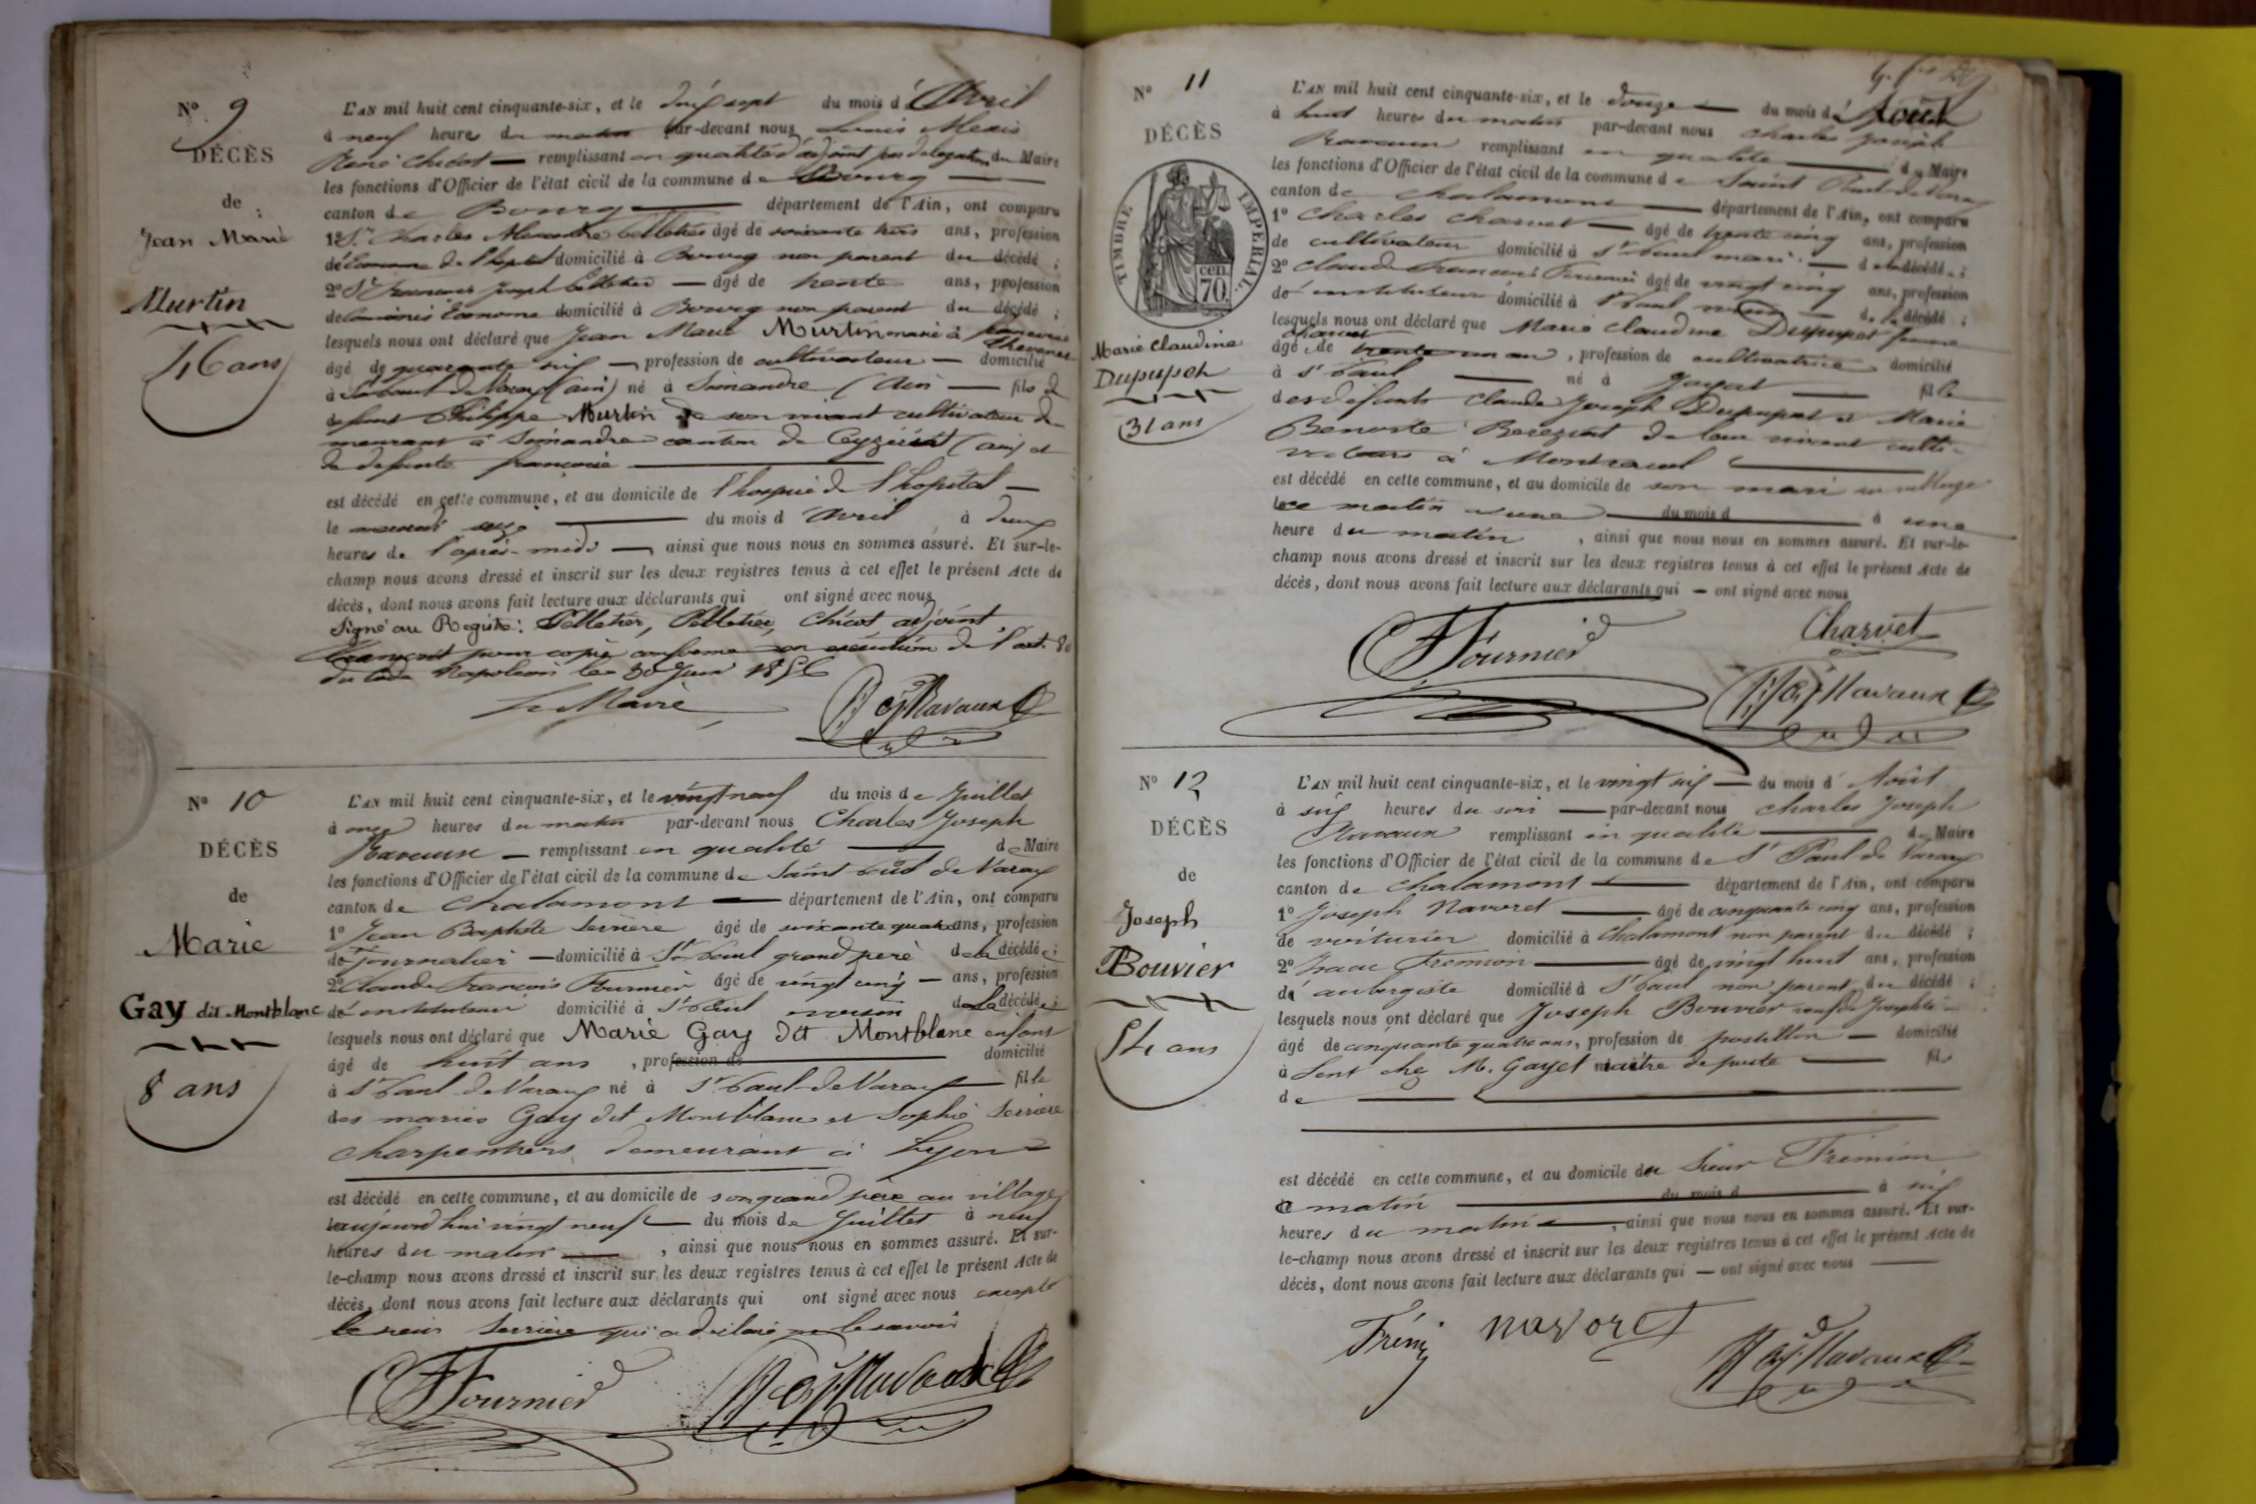 N° 9
DÉCÈS
de
Jean Marie
Murtin
46 ans
L'AN mil huit cent cinquante-six, et le dix sept du mois d'Avril
à neuf heures du matin par-devant nous Louis Alexis
René Chicot — remplissant en qualité d'adjoint par délégation du Maire
les fonctions d'Officier de l'état civil de la commune de Bourg —
canton de Bourg — département de l'Ain, ont comparu
1° Sr Charles Alexandre Pelletier âgé de soixante trois ans, profession
d'Econome de l'hopital domicilié à Bourg non parent du décédé ;
2° Sr François Joseph Pelletier — âgé de trente ans, profession
de Commis Econome domicilié à Bourg non parent du décédé ;
lesquels nous ont déclaré que Jean Marie Murtin marié à
âgé de quarante six — profession de cultivateur — domicilié
à St Paul de Varax (ain) né à Simandre (Ain — fils de
défunt Philippe Murtin de son vivant cultivateur de
meurant à Simandre canton de Ceyzériat (ain) et
de défunte françoise —
est décédé en cette commune, et au domicile de l'hospice de l'hopital —
le — du mois d'Avril à deux
heures de l'après-midi — ainsi que nous nous en sommes assuré. Et sur-le-
champ nous avons dressé et inscrit sur les deux registres tenus à cet effet le présent Acte de
décès, dont nous avons fait lecture aux déclarants qui ont signé avec nous
Signé au Registre : Pelletier, Pelletier, Chicot adjoint
pour copie conforme en exécution de l'art. 80
du Code Napoléon le 30 Juin 1856
Le Maire
Ravaux
N° 10
DÉCÈS
de
Marie
Gay dit Montblanc
8 ans
L'AN mil huit cent cinquante-six, et le vingt neuf du mois de Juillet
à onze heures du matin par-devant nous Charles Joseph
Ravaux — remplissant en qualité — de Maire
les fonctions d'Officier de l'état civil de la commune de Saint Paul de Varax
canton de Chalamont — département de l'Ain, ont comparu
1° Jean Baptiste Serrière âgé de soixante quatre ans, profession
de Journalier — domicilié à St Paul grand père de la décédée ;
2° Claude François Fournier âgé de vingt cinq — ans, profession
d'instituteur domicilié à St Paul voisin de la décédée ;
lesquels nous ont déclaré que Marie Gay dit Montblanc enfant
âgé de huit ans , profession de — domicilié
à St Paul de Varax né à St Paul de Varax — fille
des mariés Gay dit Montblanc et Sophie Serrière
charpentiers demeurant à Lyon
est décédé en cette commune, et au domicile de son grand père au village
le aujourd'hui vingt neuf — du mois de Juillet à neuf
heures du matin — , ainsi que nous nous en sommes assuré. Et sur-
le-champ nous avons dressé et inscrit sur les deux registres tenus à cet effet le présent Acte de
décès, dont nous avons fait lecture aux déclarants qui ont signé avec nous excepté
le sieur Serrière qui a déclaré ne le savoir
Fournier Ravaux
N° 11
DÉCÈS
TIMBRE IMPERIAL
70 cen.
Marie Claudine
Dupupet
31 ans
L'AN mil huit cent cinquante-six, et le douze — du mois d'Août
à huit heures du matin par-devant nous Charles Joseph
Ravaux remplissant en qualité — de Maire
les fonctions d'Officier de l'état civil de la commune de Saint Paul de Varax
canton de Chalamont — département de l'Ain, ont comparu
1° Charles Charvet — âgé de trente cinq ans, profession
de cultivateur domicilié à St Paul mari — de la décédée ;
2° Claude François Fournier âgé de vingt cinq ans, profession
d'instituteur domicilié à St Paul voisin — de la décédé ;
lesquels nous ont déclaré que Marie Claudine Dupupet femme
Charvet
âgé de trente un an , profession de cultivatrice domicilié
à St Paul — né à Jayat — fille
des défunts Claude Joseph Dupupet et Marie
Benoite de leur vivant culti-
vateurs à Montracol —
est décédé en cette commune, et au domicile de son mari au village
ce matin — du mois d — à une
heure du matin , ainsi que nous nous en sommes assuré. Et sur-le-
champ nous avons dressé et inscrit sur les deux registres tenus à cet effet le présent Acte de
décès, dont nous avons fait lecture aux déclarants qui — ont signé avec nous
Charvet
Fournier
Ravaux
N° 12
DÉCÈS
de
Joseph
Bouvier
54 ans
L'AN mil huit cent cinquante-six, et le vingt six — du mois d'Août
à six heures du soir — par-devant nous Charles Joseph
Ravaux remplissant en qualité — de Maire
les fonctions d'Officier de l'état civil de la commune de St Paul de Varax
canton de Chalamont — département de l'Ain, ont comparu
1° Joseph Navoret — âgé de cinquante cinq ans, profession
de voiturier domicilié à Chalamont non parent du décédé ;
2° Isaac Fremion — âgé de vingt huit ans, profession
d'aubergiste domicilié à St Paul non parent du décédé ;
lesquels nous ont déclaré que Joseph Bouvier
âgé de cinquante quatre ans, profession de postillon — domicilié
à Lent chez M. Gayet maître de poste — fils
de —
est décédé en cette commune, et au domicile du Sieur Frémion
ce matin — du mois d — à six
heures du matin — , ainsi que nous nous en sommes assuré. Et sur-
le-champ nous avons dressé et inscrit sur les deux registres tenus à cet effet le présent Acte de
décès, dont nous avons fait lecture aux déclarants qui — ont signé avec nous —
Navoret
Ravaux